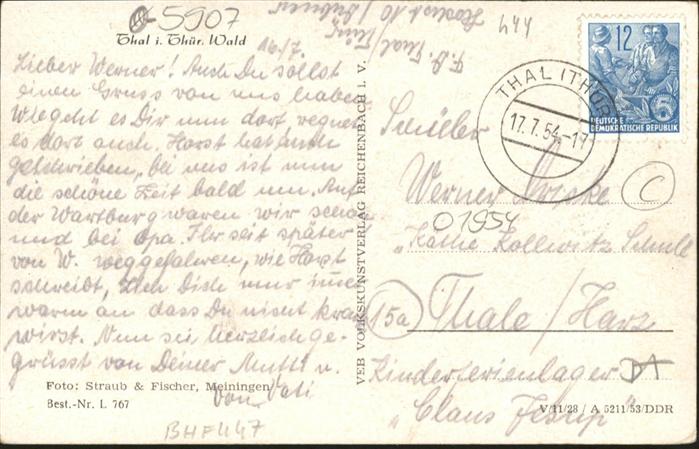 5907
Thal i. Thür. Wald
16/7.
Lieber Werner! Auch Du sollst
einen Gruss von uns haben
Wie geht es Dir nun dort, regnet
es dort auch. Horst hat auch
geschrieben, bei uns ist nun
die schöne Zeit bald um. Auf
der Wartburg waren wir schon
und bei Opa. Ihr seit später
von W. weggefahren, wie Horst
schreibt, Zieh Dich nur
warm an dass Du nicht
wirst. Nun sei herzlich ge-
grüsst von Deiner Mutti u.
von Vati
Foto: Straub & Fischer, Meiningen
Best.-Nr. L 767
BHF447
VEB VOLKSKUNSTVERLAG REICHENBACH I. V.
Thal
444
THAL (THÜR
17.7.54-17
12
DEUTSCHE
DEMOKRATISCHE REPUBLIK
5
Schüler
Werner
C
01954
"Käthe Kollwitz Schule
15a
Thale / Harz
Kinderferienlager
"Claus
V/11/28 / A 5211/53/DDR